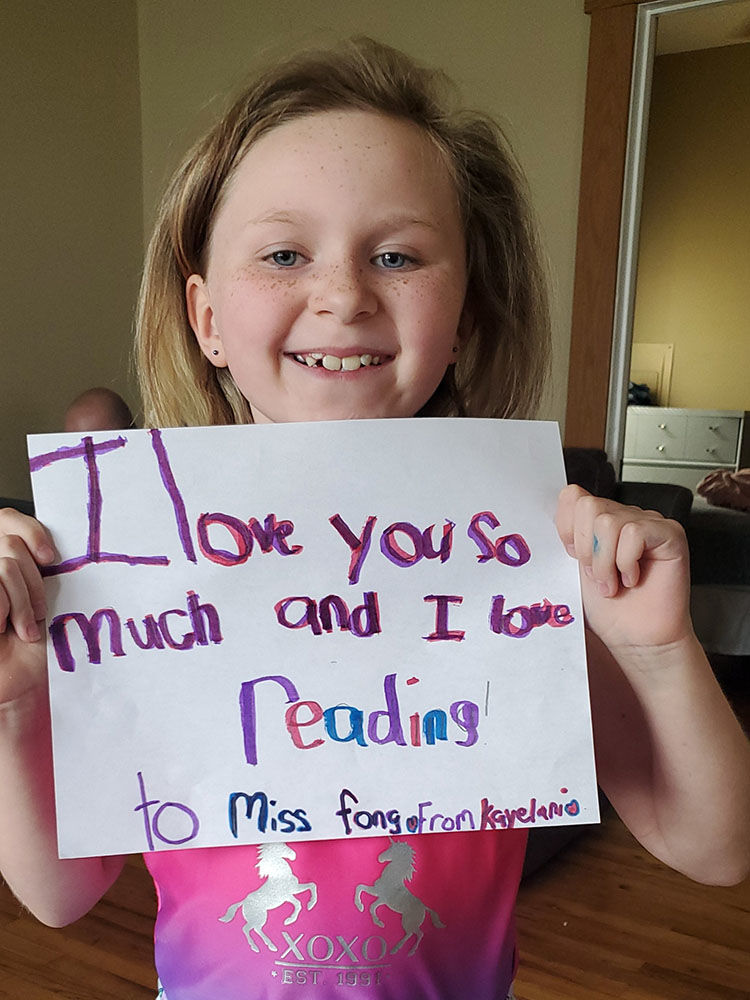 I love you so
much and I love
reading
to Miss fong From Kayelani
XOXO
EST. 1991